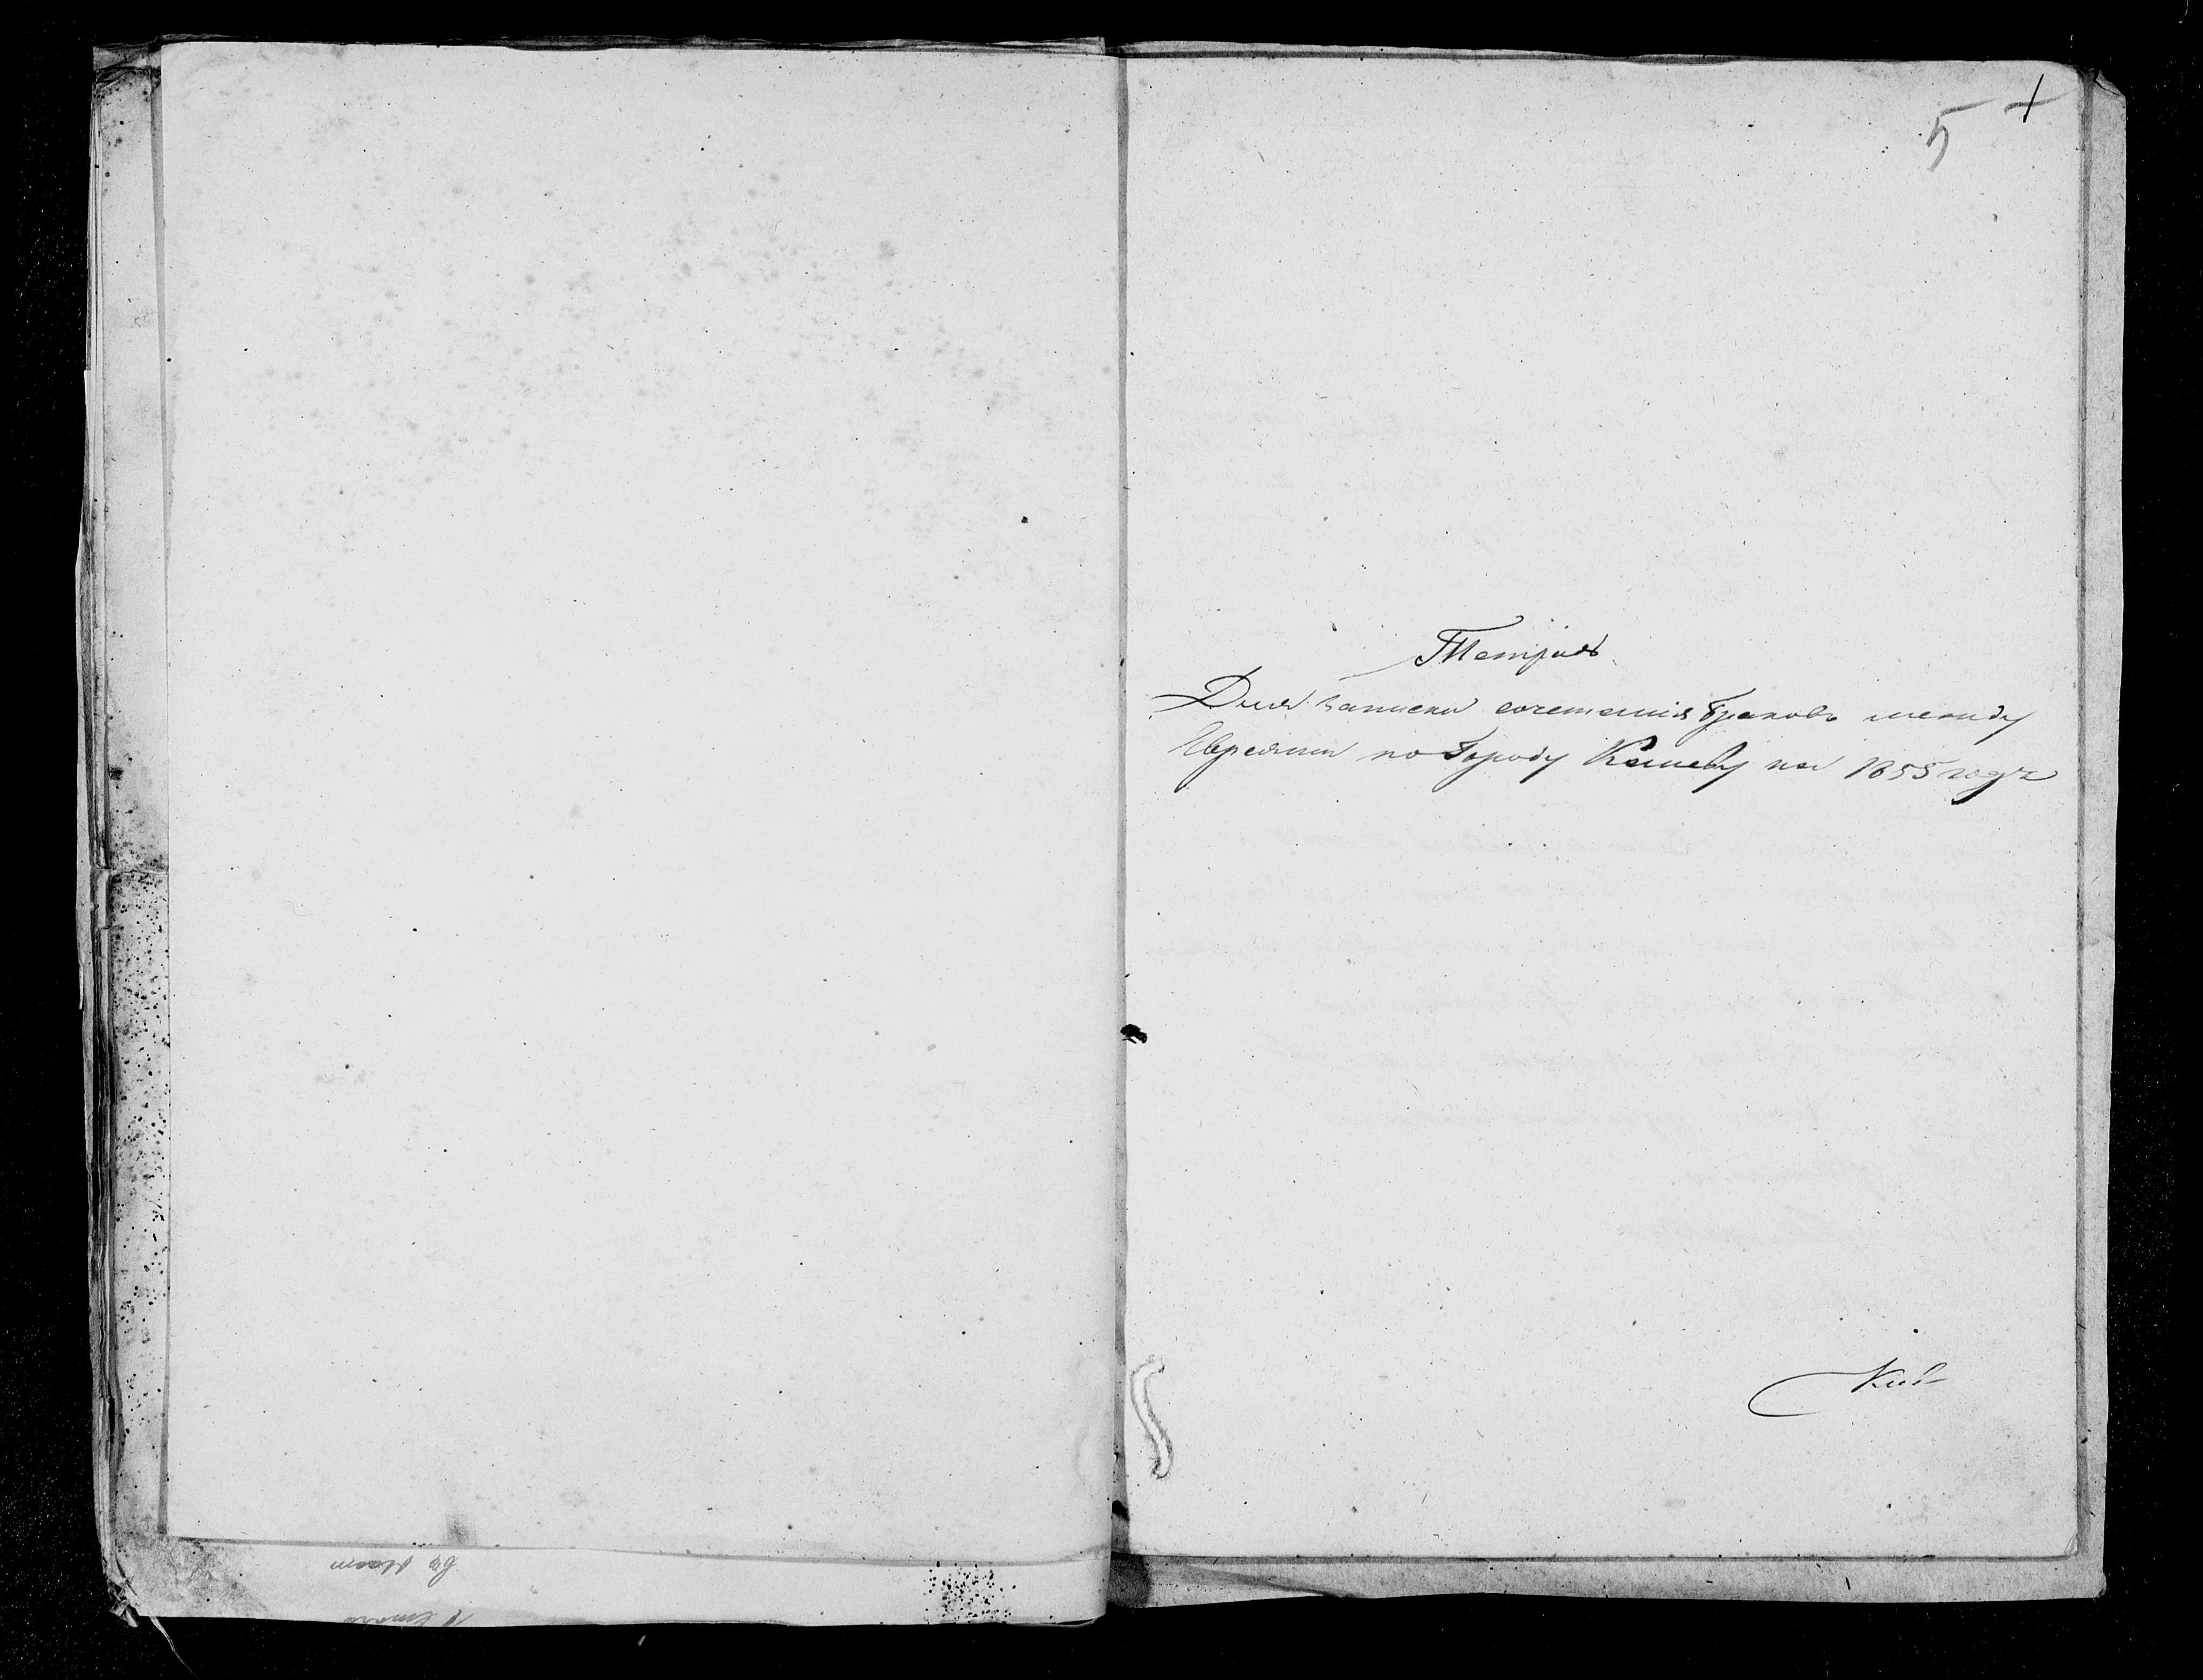 5
Тетрадь
Для записки сочетания браковъ между
Евреями по Городу Каневу на 1855 годъ